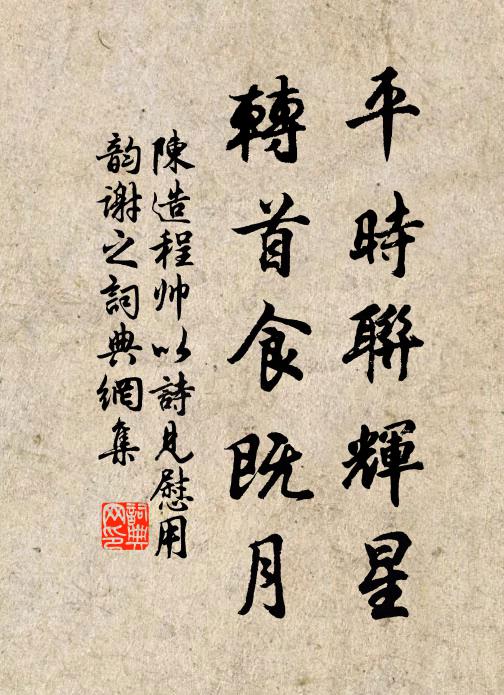 平時聯輝星
轉首食既月
陳造程帅以詩見慰用
韵谢之詞典網集
詞典网印